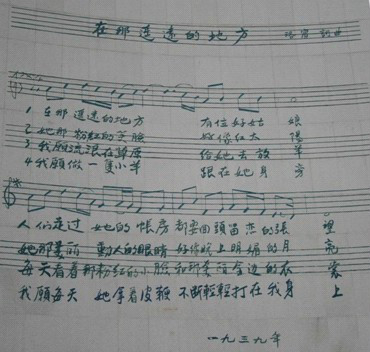 在那遥远的地方 洛宾 词曲
1 在那遥远的地方 有位好姑 娘
2 她那粉红的笑脸 好像红太 陽
3 我愿流浪在草原 给她去放 羊
4 我愿做一隻小羊 跟在她身 旁
人们走过 她的帐房 都要回頭留恋的張 望
她那美丽 動人的眼睛 好像晚上明媚的月 亮
每天看着那粉红的小脸和那美丽金边的衣 裳
我愿每天 她拿着皮鞭 不断轻轻打在我身 上
一九三九年